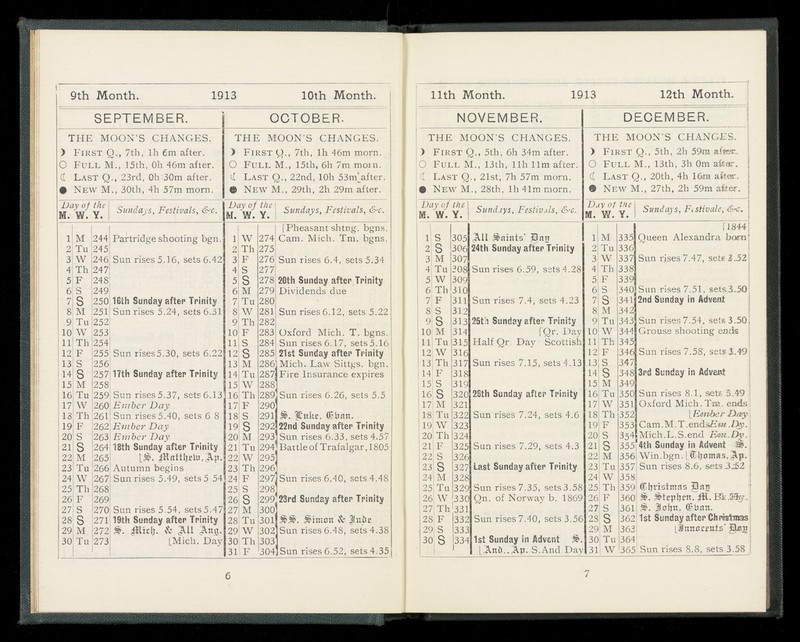 9th Month. 1913 10th Month.
SEPTEMBER.
THE MOON'S CHANGES.
☽ FIRST Q., 7th, 1h 6m after.
○ FULL M., 15th, 0h 46m after.
☾ LAST Q., 23rd, 0h 30m after.
● NEW M., 30th, 4h 57m morn.
Day of the
M. W. Y. Sundays, Festivals, &c.
1 M 244 Partridge shooting bgn.
2 Tu 245
3 W 246 Sun rises 5.16, sets 6.42
4 Th 247
5 F 248
6 S 249
7 S 250 16th Sunday after Trinity
8 M 251 Sun rises 5.24, sets 6.31
9 Tu 252
10 W 253
11 Th 254
12 F 255 Sun rises 5.30, sets 6.22
13 S 256
14 S 257 17th Sunday after Trinity
15 M 258
16 Tu 259 Sun rises 5.37, sets 6.13
17 W 260 Ember Day
18 Th 261 Sun rises 5.40, sets 6 8
19 F 262 Ember Day
20 S 263 Ember Day
21 S 264 18th Sunday after Trinity
22 M 265 [S. Matthew, Ap.
23 Tu 266 Autumn begins
24 W 267 Sun rises 5.49, sets 5 54
25 Th 268
26 F 269
27 S 270 Sun rises 5.54, sets 5.47
28 S 271 19th Sunday after Trinity
29 M 272 S. Mich. & All Ang.
30 Tu 273 [Mich. Day
OCTOBER.
THE MOON'S CHANGES.
☽ FIRST Q., 7th, 1h 46m morn.
○ FULL M., 15th, 6h 7m morn.
☾ LAST Q., 22nd, 10h 53m after.
● NEW M., 29th, 2h 29m after.
Day of the
M. W. Y. Sundays, Festivals, &c.
[Pheasant shtng. bgns.
1 W 274 Cam. Mich. Tm. bgns.
2 Th 275
3 F 276 Sun rises 6.4, sets 5.34
4 S 277
5 S 278 20th Sunday after Trinity
6 M 279 Dividends due
7 Tu 280
8 W 281 Sun rises 6.12, sets 5.22
9 Th 282
10 F 283 Oxford Mich. T. bgns.
11 S 284 Sun rises 6.17, sets 5.16
12 S 285 21st Sunday after Trinity
13 M 286 Mich. Law Sittgs. bgn.
14 Tu 287 Fire Insurance expires
15 W 288
16 Th 289 Sun rises 6.26, sets 5.5
17 F 290
18 S 291 S. Luke. Evan.
19 S 292 22nd Sunday after Trinity
20 M 293 Sun rises 6.33, sets 4.57
21 Tu 294 Battle of Trafalgar, 1805
22 W 295
23 Th 296
24 F 297 Sun rises 6.40, sets 4.48
25 S 298
26 S 299 23rd Sunday after Trinity
27 M 300
28 Tu 301 SS. Simon & Jude
29 W 302 Sun rises 6.48, sets 4.38
30 Th 303
31 F 304 Sun rises 6.52, sets 4.35
6
11th Month. 1913 12th Month.
NOVEMBER.
THE MOON'S CHANGES.
☽ FIRST Q., 5th, 6h 34m after.
○ FULL M., 13th, 11h 11m after.
☾ LAST Q., 21st, 7h 57m morn.
● NEW M., 28th, 1h 41m morn.
Day of the
M. W. Y. Sundays, Festivals, &c.
1 S 305 All Saints' Day
2 S 306 24th Sunday after Trinity
3 M 307
4 Tu 308 Sun rises 6.59, sets 4.28
5 W 309
6 Th 310
7 F 311 Sun rises 7.4, sets 4.23
8 S 312
9 S 313 25th Sunday after Trinity
10 M 314 [Qr. Day
11 Tu 315 Half Qr. Day Scottish
12 W 316
13 Th 317 Sun rises 7.15, sets 4.13
14 F 318
15 S 319
16 S 320 26th Sunday after Trinity
17 M 321
18 Tu 322 Sun rises 7.24, sets 4.6
19 W 323
20 Th 324
21 F 325 Sun rises 7.29, sets 4.3
22 S 326
23 S 327 Last Sunday after Trinity
24 M 328
25 Tu 329 Sun rises 7.35, sets 3.58
26 W 330 Qn. of Norway b. 1869
27 Th 331
28 F 332 Sun rises 7.40, sets 3.56
29 S 333
30 S 334 1st Sunday in Advent S.
[And., Ap. S. And Day
DECEMBER.
THE MOON'S CHANGES.
☽ FIRST Q., 5th, 2h 59m after.
○ FULL M., 13th, 3h 0m after.
☾ LAST Q., 20th, 4h 16m after.
● NEW M., 27th, 2h 59m after.
Day of the
M. W. Y. Sundays, Festivals, &c.
[1844
1 M 335 Queen Alexandra born
2 Tu 336
3 W 337 Sun rises 7.47, sets 3.52
4 Th 338
5 F 339
6 S 340 Sun rises 7.51, sets 3.50
7 S 341 2nd Sunday in Advent
8 M 342
9 Tu 343 Sun rises 7.54, sets 3.50
10 W 344 Grouse shooting ends
11 Th 345
12 F 346 Sun rises 7.58, sets 3.49
13 S 347
14 S 348 3rd Sunday in Advent
15 M 349
16 Tu 350 Sun rises 8.1, sets 5.49
17 W 351 Oxford Mich. Tm. ends
18 Th 352 [Ember Day
19 F 353 Cam. M. T. ends Em. Dy.
20 S 354 Mich. L. S. end Em. Dy.
21 S 355 4th Sunday in Advent S.
22 M 356 Win. bgn. [Thomas, Ap.
23 Tu 357 Sun rises 8.6, sets 3.52
24 W 358
25 Th 359 Christmas Day
26 F 360 S. Stephen, M. Bk. Hy.
27 S 361 S. John, Evan.
28 S 362 1st Sunday after Christmas
29 M 363 [Innocents' Day
30 Tu 364
31 W 365 Sun rises 8.8, sets 3.58
7